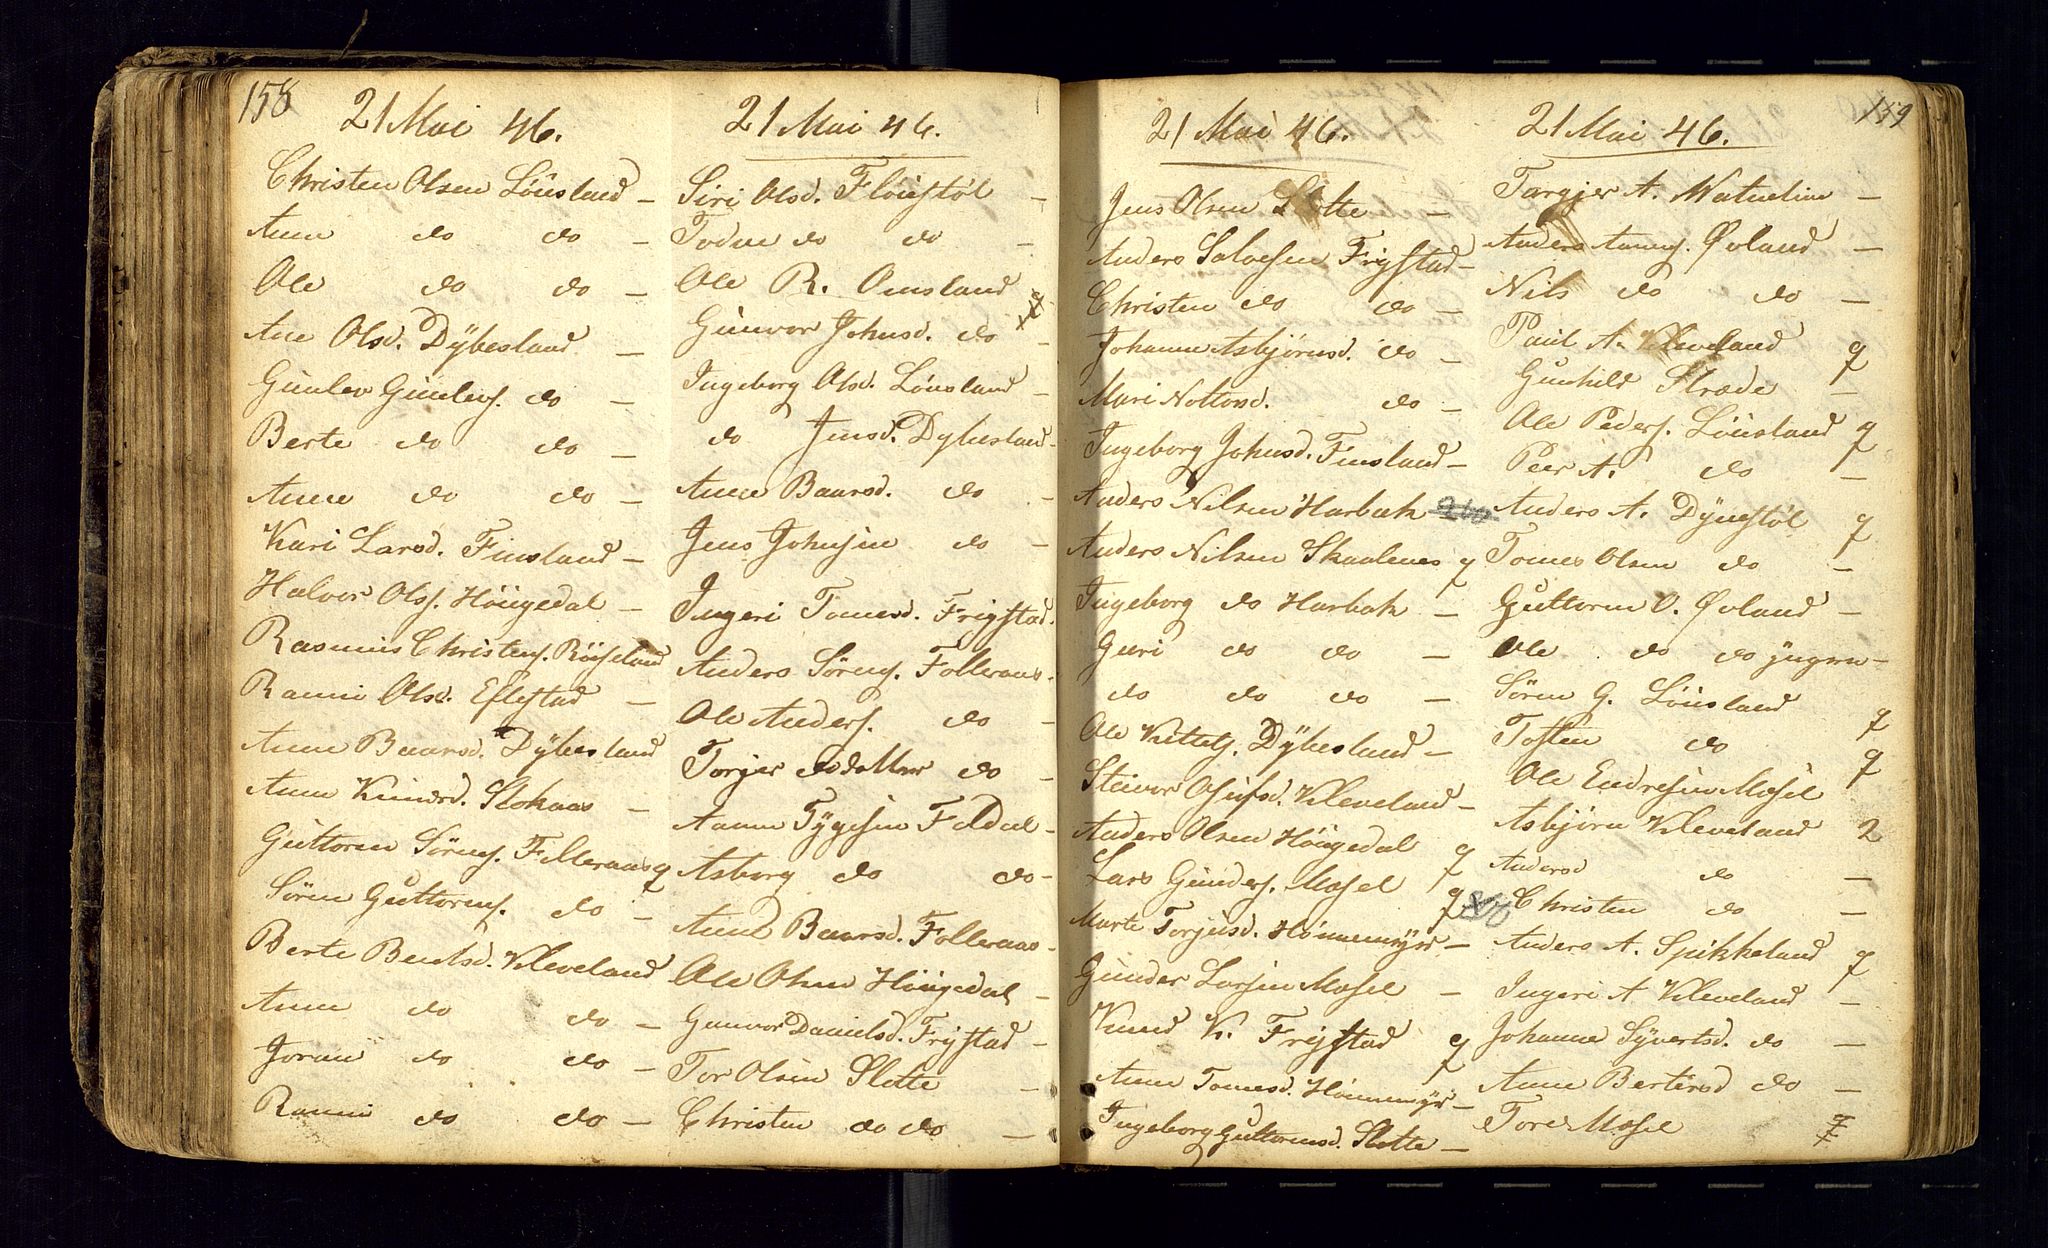 158
21 Mai 46.
Christen Olsen Lönsland —
Anne do do —
Ole do do —
Ane Olsd. Dÿbesland —
Gunlev Gunlevs. do —
Berte do do —
Anne do do —
Kari Larsd. Finsland —
Halvor Olss. Höugedal —
Rasmus Christens. Röiseland
Ranni Olsd. Eflestad —
Anne Baarsd. Dÿbesland
Anne Knudsd. Stokaas —
Guttorm Sörens. Folleraas q
Sören Guttorms. do —
Berte Bentsd. Kleveland
Anne do do —
Joran do do —
Ranni do do —
21 Mai 46.
Siri Olsd. Flöistöl —
Todne do do —
Ole R. Omsland
Gunvor Johnsd. do —
Ingeborg Olsd. Lönsland —
do Jensd. Dybesland —
Anne Baarsd. do —
Jens Johnsen do —
Ingeri Tomesd. Frigstad.
Anders Sörens. Folleraas —
Ole Anders. do —
Torjer do do —
Aanen Tygesen Feldal —
Asborg do do —
Anne Baarsd. Folleraas —
Ole Olsen Höugedal —
Gunvor Danielsd. Frijstad —
Tor Olsen Slotte —
Christen do do —
159
21 Mai 46.
Jens Olsen Slotte —
Anders Salvesen Frijstad —
Christen do do —
Johanne Asbjörnsd. do —
Mari Nottovsd. do —
Ingeborg Johnsd. Finsland —
Anders Nilsen Harbak
Anders Nilsen Skaalenes q
Ingeborg do Harbak —
Guri do do —
do do do —
Ole Kittels. Dÿbesland —
Steinvor Osufsd. Kleveland —
Anders Olsen Höugedal q
Lars Gunders. Mosel q
Marte Torjusd. Hönnemyr —
Gunder Larsen Mosel —
Knud K. Frijstad q
Anne Tomesd. Hönnemyr —
Ingeborg Guttormsd. Slotte —
21 Mai 46.
Targjer A. Watnelien —
Anders Aanens. Øvland —
Nils do do —
Paul A. Kleveland q
Gunhild Stræde —
Ole Peders. Lönsland q
Peer A. do —
Anders A. Dÿnestöl q
Tomes Olsen do —
Guttorm O. Øvland —
Ole do do yngere —
Sören G. Lönsland q
Tosten do q
Ole Endresen Mosel
Asbjörn Kleveland 2
Anders do —
Christen do —
Anders A. Spikkeland q
Ingeri A Kleveland —
Johanne Syvertsd. do —
Anne Bertèrsd do —
Tore Mosel